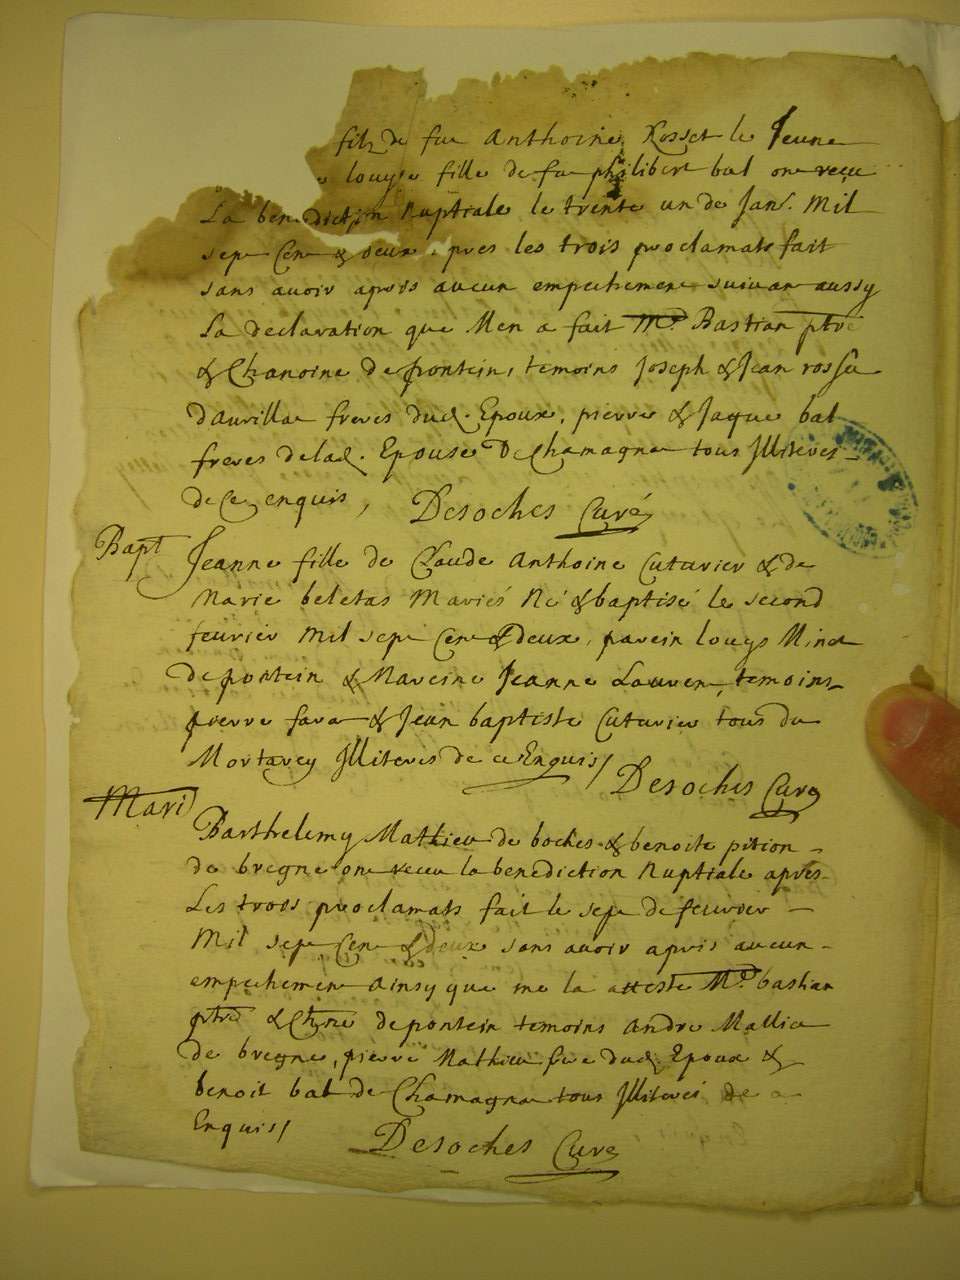 filz de fue Anthoine Rosset le Jeune
louyse fille de fue philibert bal on receu
La benediction Nuptiale le trente un de Janr. Mil
sept Cent & deux . pres les trois proclamats fait
sans avoir apris aucun empechement suivan aussy
La declaration que Men a fait Mre Bastian ptre
& Chanoine de pontein, temoins Joseph & Jean rosset
d'aurillae freres dud. Epoux, pierre & Jaque bal
freres delad. Epouse De Chamagne tous Illiteres
de ce enquis, Desoches Curé
Bapt Jeanne fille de Claude Anthoine Cuturier & de
Marie beletas Mariés Né & baptisé le second
feuvrier Mil sept Cent & deux, parein louys Minet
de pontein & Mareine Jeanne Lauren, temoins
pierre favre & Jean baptiste Cuturier tous du
Mortarey Illiteres de ce Enquis/ Desoches Curé
Mari
Barthelemy Mathieu de boches & benoite pition
de bregne on receu la benediction Nuptiale apres
Les trois proclamats fait le sept de feuvrier
Mil sept Cent & deux sans avoir apris aucun
empechement Ainsy que me la atteste Mre bastian
ptre & Chne de pontein temoins Andre Mallie
de bregne, pierre Mathieu frere dud. Epoux &
benoit bal de Chamagne tous Illiteres de ce
Enquis/
Desoches Curé